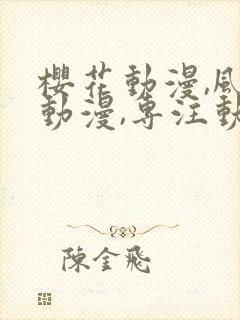 櫻花動漫,風
動漫,專注動
陳金飛